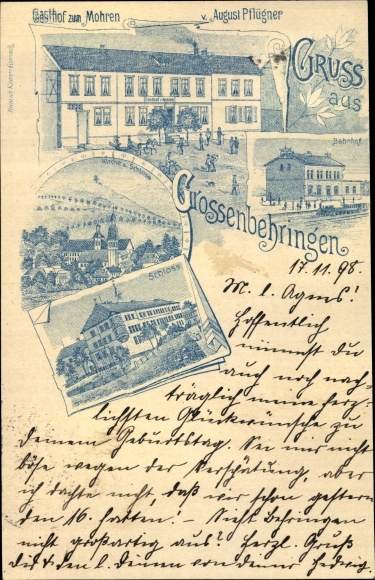 Gasthof zum Mohren v. August Pflügner
Gruss
aus
Bahnhof
Kirche u. Schloss
Grossenbehringen
Schloss
17.11.98.
M. l. Agnes!
Hoffentlich
nimmst du
auch noch nach-
träglich meine herz-
lichsten Glückwünsche zu
deinem Geburtstag. Sei mir nicht
böse wegen der Verspätung, aber
ich dachte nicht, daß wir schon gestern
den 16. hatten! – Sieht Behringen
nicht großartig aus? Herzl. Gruß
dir & den l. Deinen von deiner Hedwig.